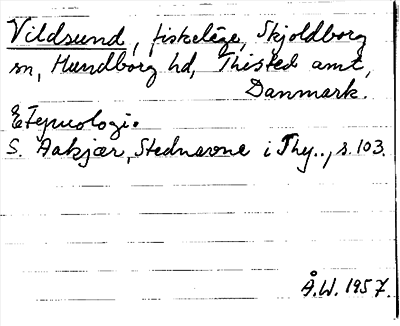 Vildsund, fiskeläge, Skjoldborg
sn, Hundborg hd, Thisted amt,
Danmark.
Etymologi.
S. Aakjær, Stednavne i Thy.., s. 103.
Å.W. 1957.